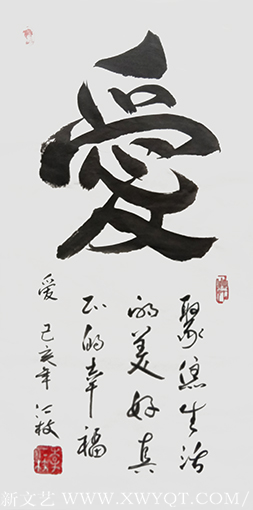 愛
聚焦生活
的美好真
正的幸福
爱 己亥年 江枝
新文艺/WWW.XWYQT.COM/